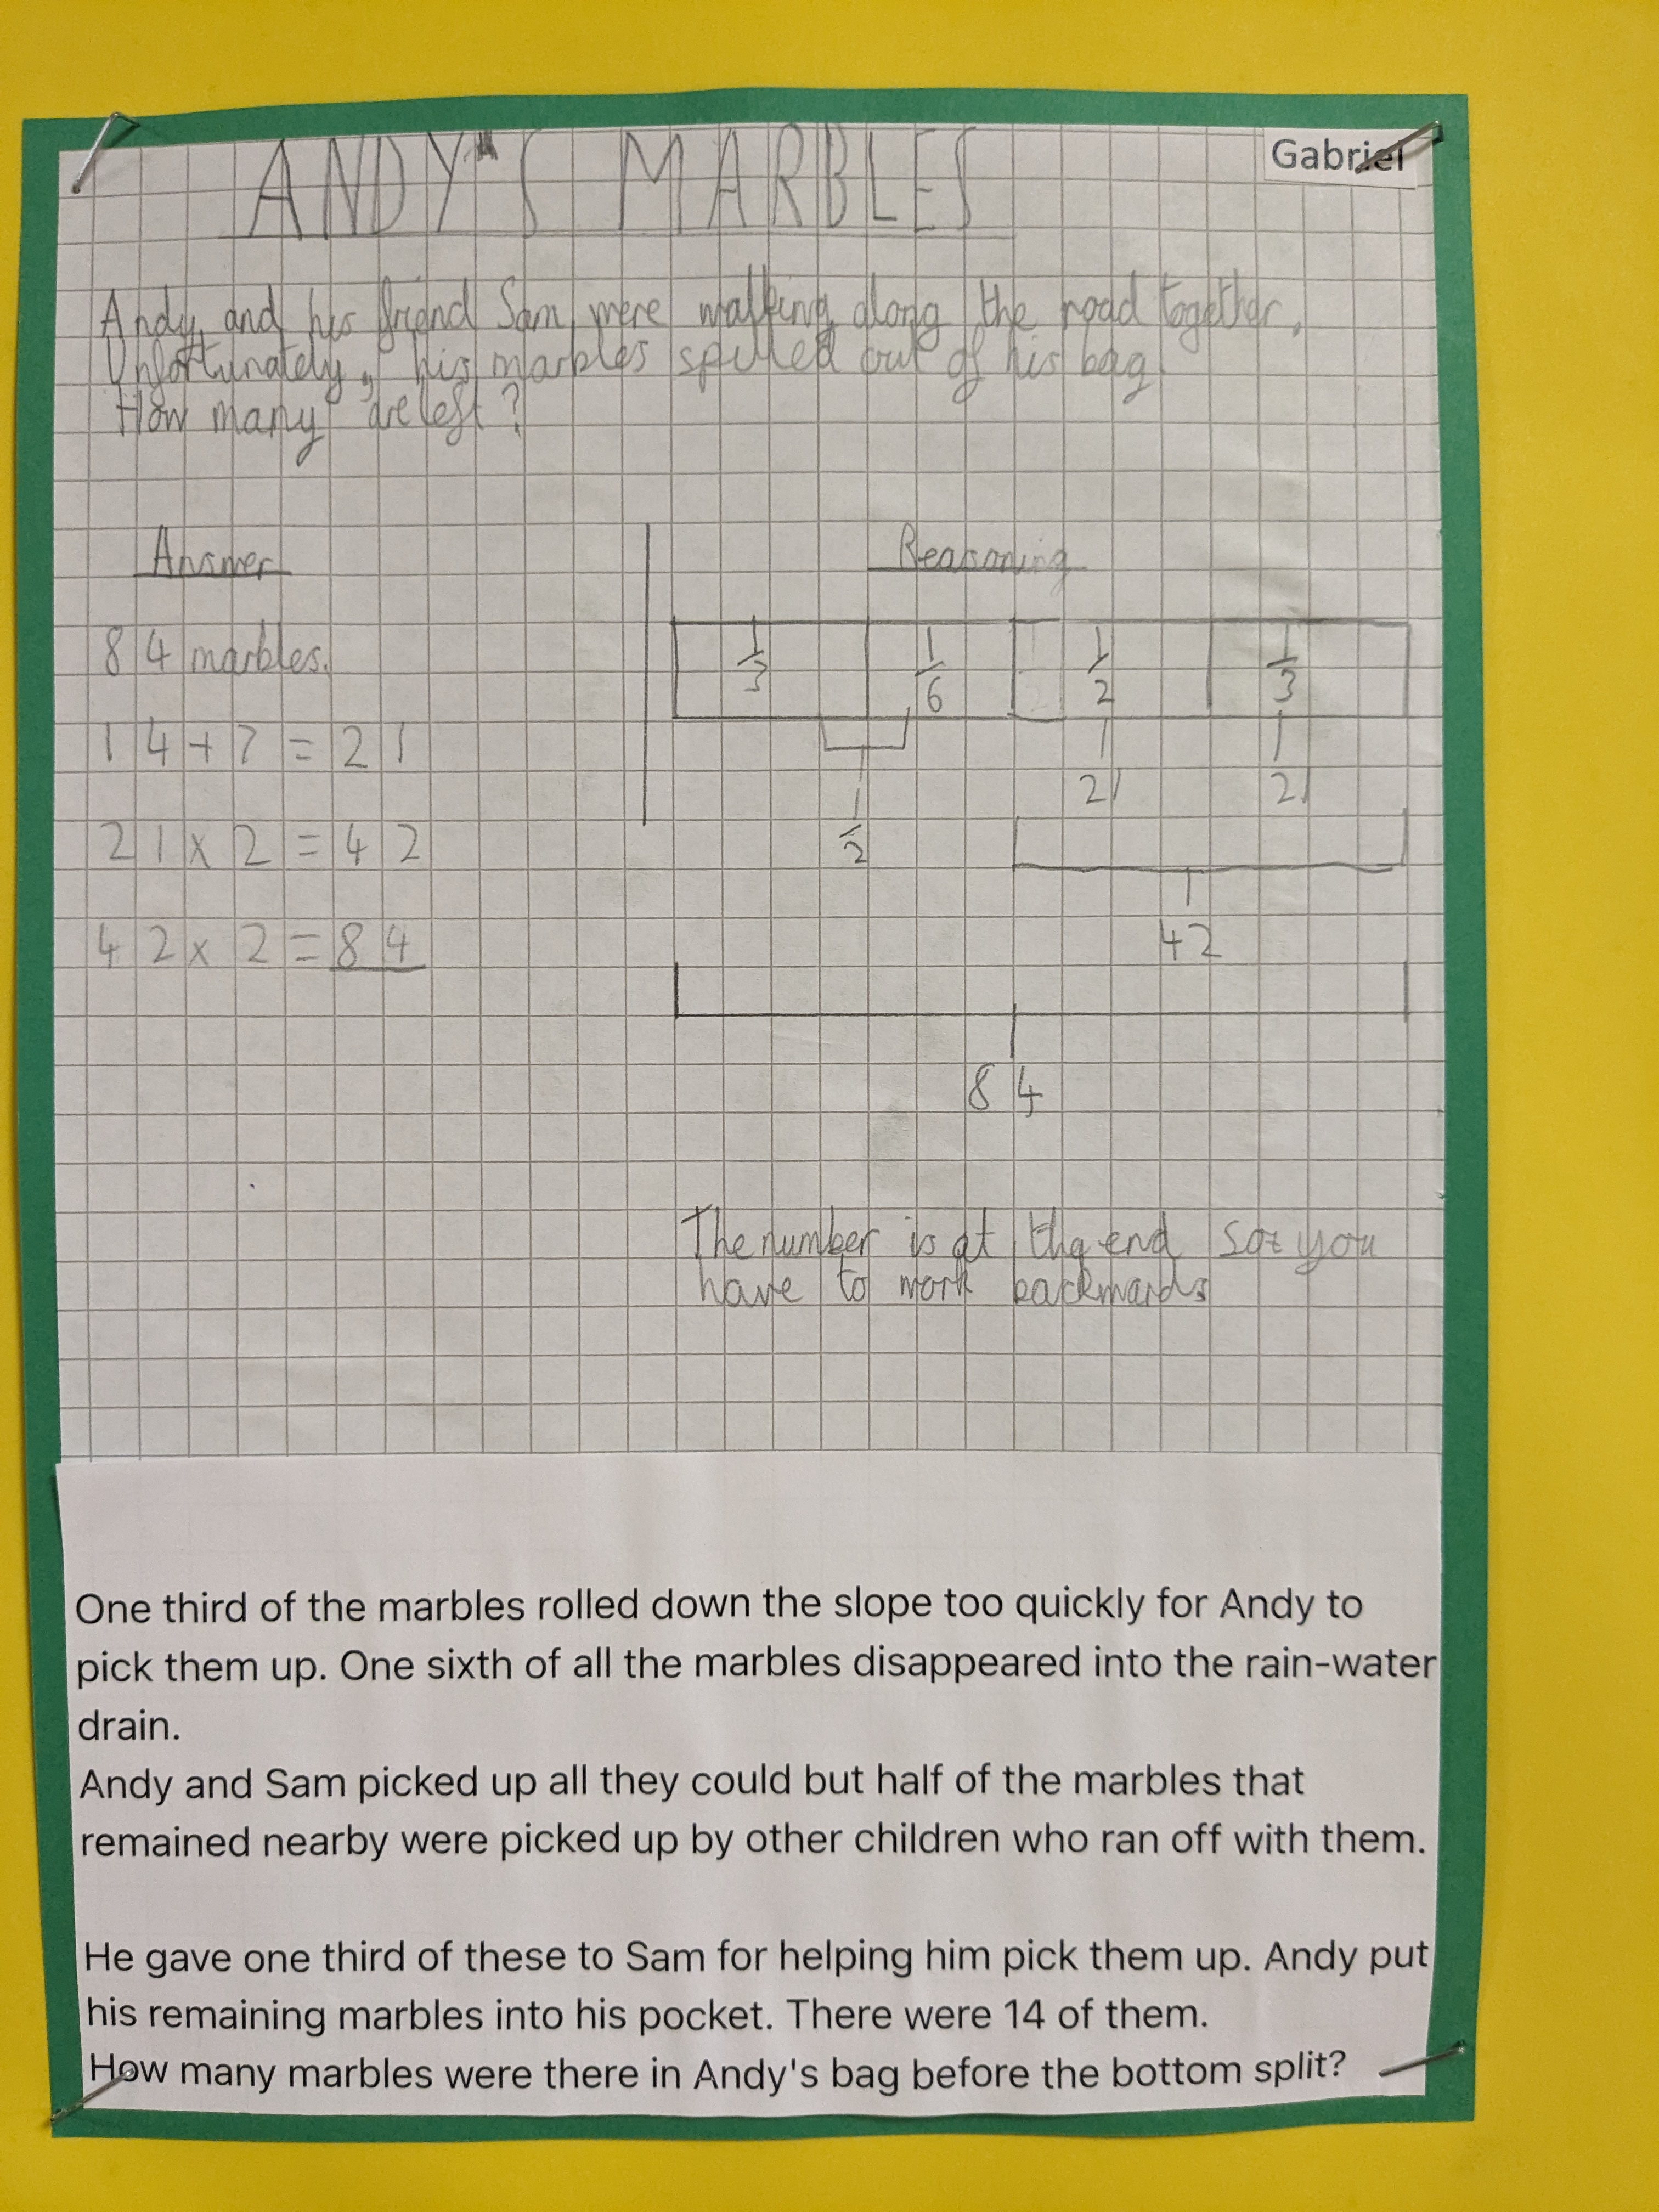 ANDY'S MARBLES
Gabriel
Andy and his friend Sam were walking along the road together.
Unfortunately, his marbles spilled out of his bag
How many are left?
Answer
84 marbles.
14+7=21
21x2=42
42x2=84
Reasoning
1/3 1/6 1/2 1/3
1/2 21 21
42
84
The number is at the end so you
have to work backwards
One third of the marbles rolled down the slope too quickly for Andy to
pick them up. One sixth of all the marbles disappeared into the rain-water
drain.
Andy and Sam picked up all they could but half of the marbles that
remained nearby were picked up by other children who ran off with them.
He gave one third of these to Sam for helping him pick them up. Andy put
his remaining marbles into his pocket. There were 14 of them.
How many marbles were there in Andy's bag before the bottom split?